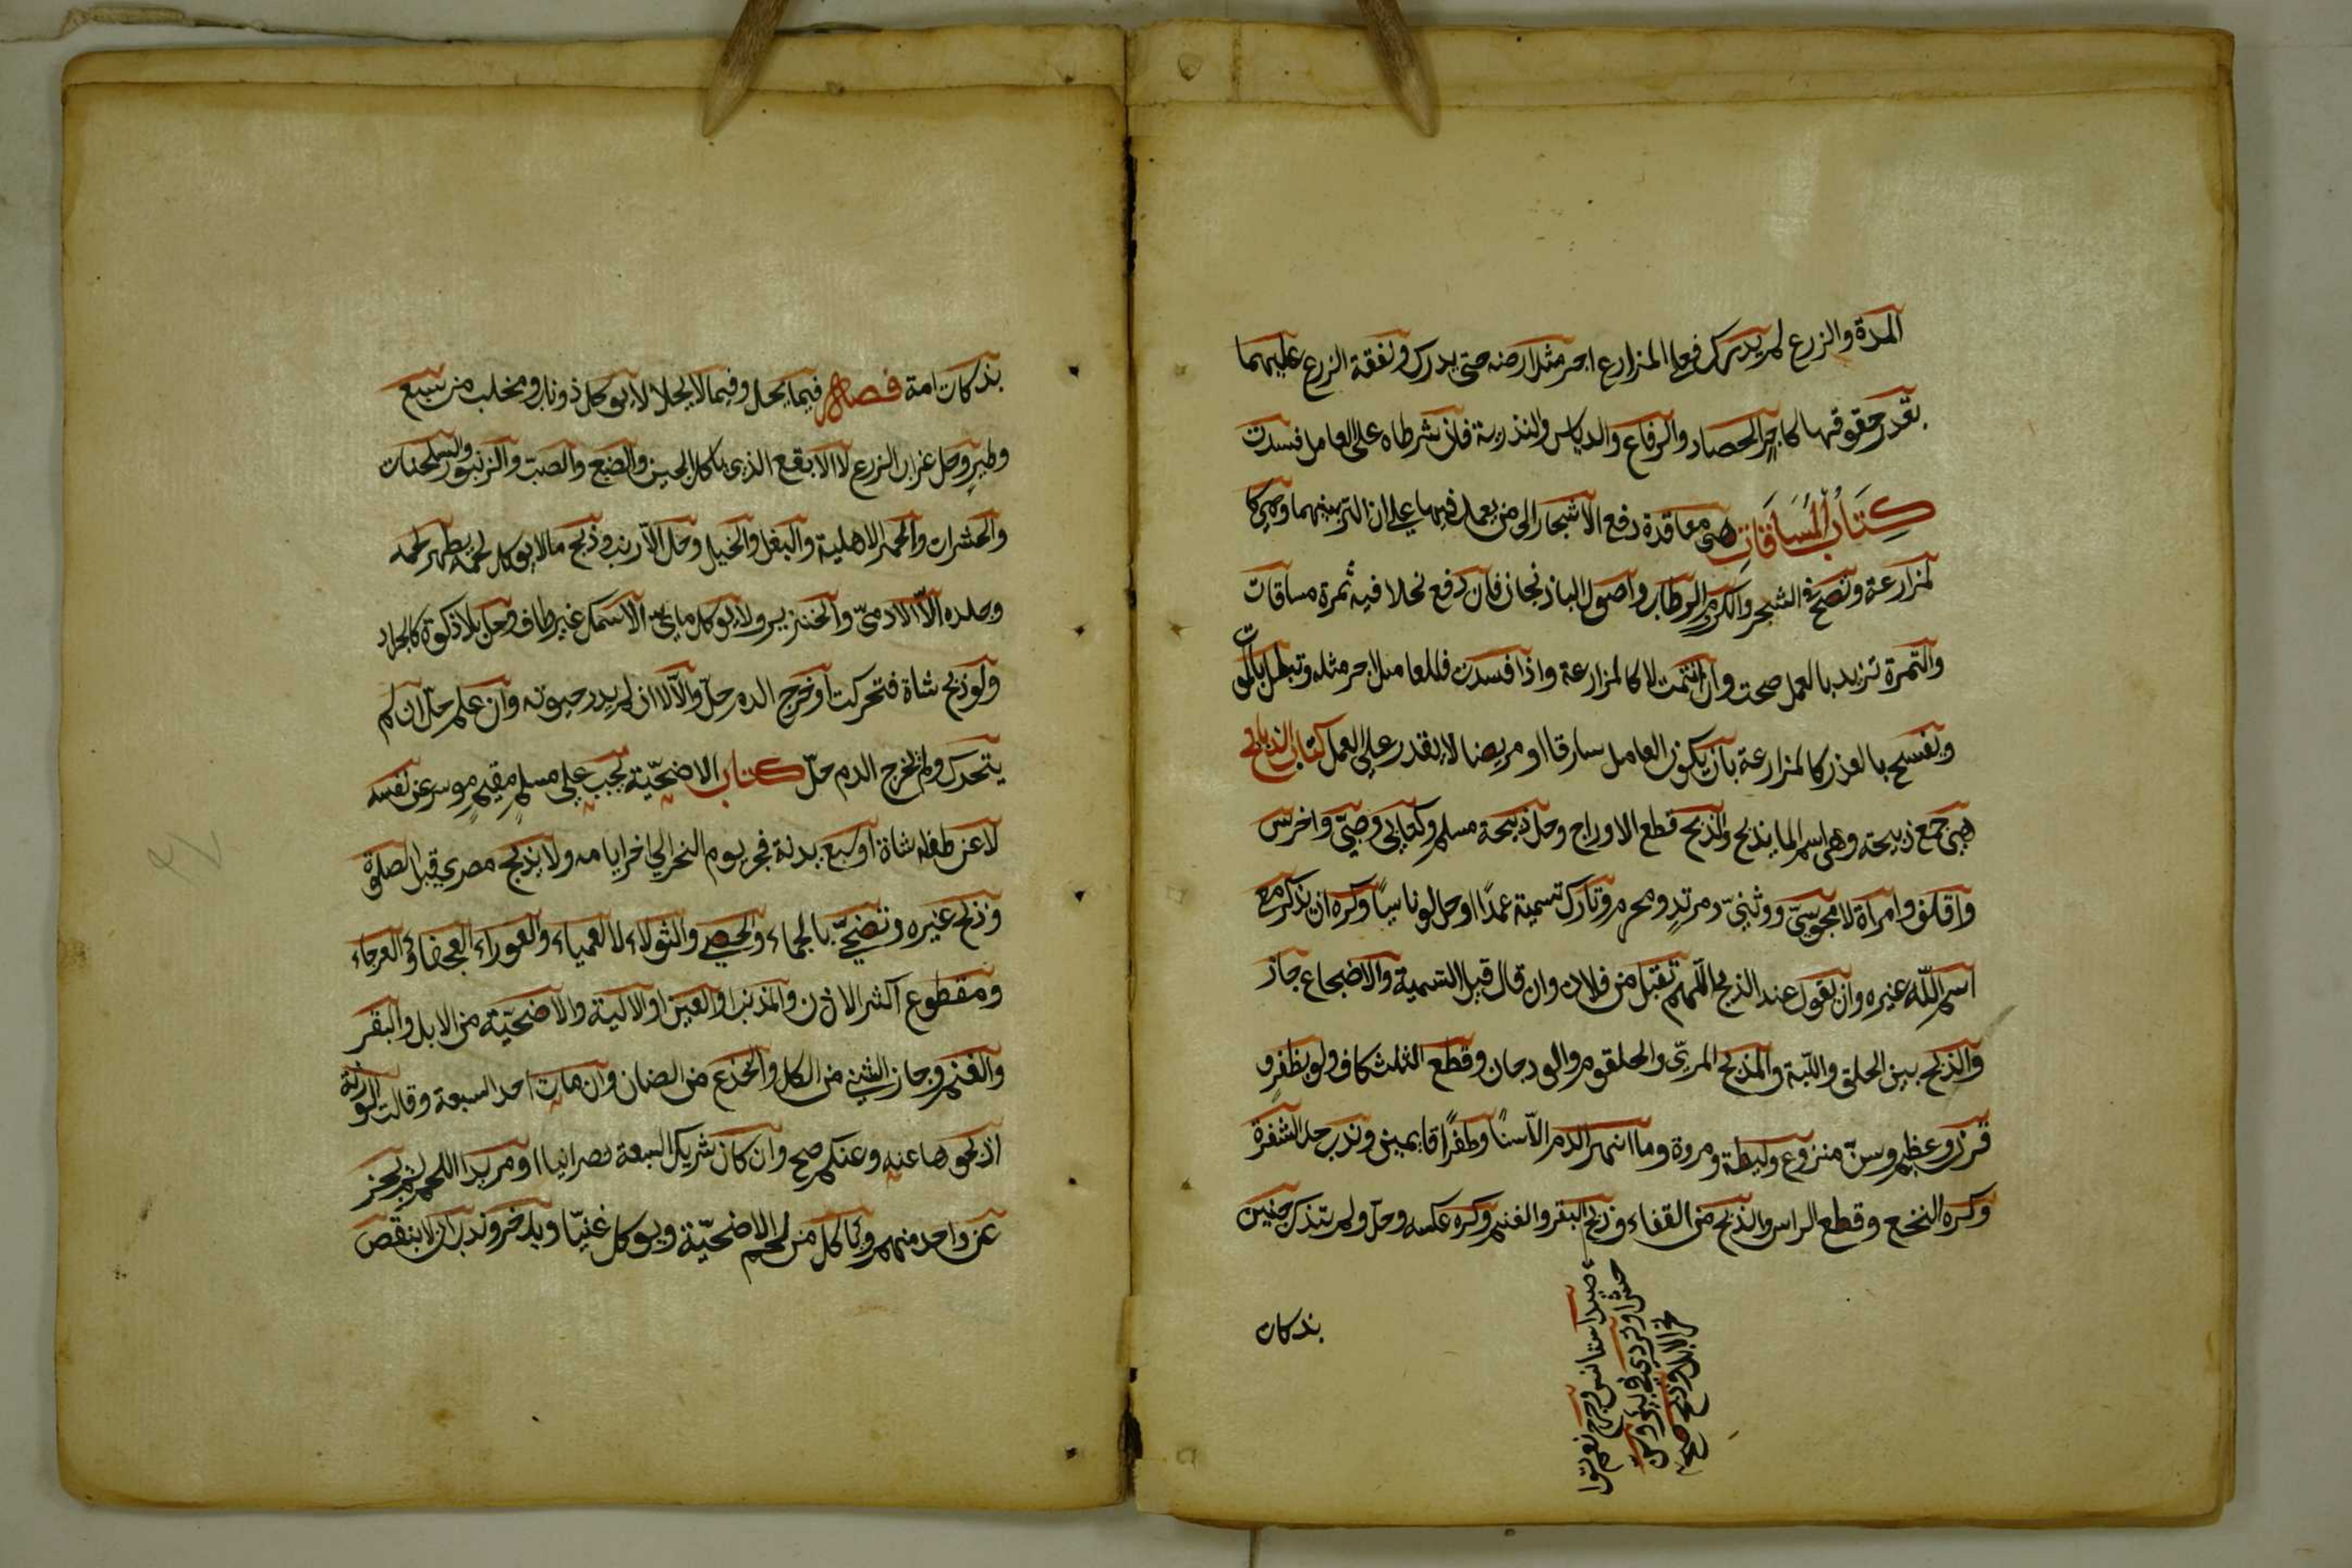 المدة والزرع لم يدرك فعلى المزارع اجر مثل ارضه حتى يدرك ونفقة الزرع عليهما
بقدر حقوقهما كاجر الحصاد والرفاع والدياس والتذرية فان شرطاه على العامل فسدت
كتاب المساقات هى معاقدة دفع الاشجار الى من يعمل فيها على ان الثمر بينهما وهى كا
لمزارعة وتصح فى الشجر والكرم والرطاب واصول الباذنجان فان دفع نخلا فيه ثمرة مساقات
والثمرة تزيد بالعمل صحت وان انتهت لا كالمزارعة واذا فسدت فللعامل اجر مثله وتبطل بالموت
وتفسخ بالعذر كالمزارعة بان يكون العامل سارقا او مريضا لا يقدر على العمل كتاب الذبائح
هى جمع ذبيحة وهى اسم لما يذبح والذبح قطع الاوداج وحل ذبيحة مسلم وكتابى وصبى واخرس
واقلف وامراة لا مجوسى ووثنى ومرتد ومحرم وتارك تسمية عمدا وحل لو ناسيا وكره ان يذكر مع
اسم الله غيره وان يقول عند الذبح اللهم تقبل من فلان وان قال قبل التسمية والاضجاع جاز
والذبح بين الحلق واللبة والمذبح المرئ والحلقوم والودجان وقطع الثلث كاف ولو بظفر و
قرن وعظم وسن منزوع وليطة ومروة وما انهر الدم الا سنا وظفرا قايمين وندب حد الشفرة
وكره النخع وقطع الراس والذبح من القفاء وذبح البقر والغنم وكره عكسه وحل ولم يتذك جنين
صيد استانس وجرح نعم توا
حش او تردى فى بئر وسن
نحر الابل وذبح صح
بذكات
بذكات امه فصل فيما يحل وفيما لا يحل لا يوكل ذو ناب ومخلب من سبع
وطير وحل غراب الزرع لا الابقع الذى ياكل الجيف والضبع والضب والزنبور والسلحفات
والحشرات والحمر الاهلية والبغل والخيل وحل الارنب وذبح ما لا يوكل لحمه يطهر لحمه
وجلده الا الادمى والخنزير ولا يوكل مائى الا السمك غير طاف وحل بلا ذكوة كالجراد
ولو ذبح شاة فتحركت او خرج الدم حل والا لا ان لم يدر حيوته وان علم حل ان لم
يتحرك ولم يخرج الدم حل كتاب الاضحية يجب على مسلم مقيم موسر عن نفسه
لا عن طفله شاة او سبع بدنة فجر يوم النحر الى اخر ايامه ولا يذبح مصرى قبل الصلوة
وذبح غيره وتضحى بالجماء والخصى والثولاء لا العمياء والعوراء والعجفاء والعرجاء
ومقطوع اكثر الاذن والذنب او العين او الالية والاضحية من الابل والبقر
والغنم وجاز الثنى من الكل والجذع من الضان وان مات احد السبعة وقالت الورثة
اذبحوها عنه وعنكم صح وان كان شريك السبعة نصرانيا او مريدا اللحم لم يجز
عن واحد منهم وياكل من لحم الاضحية ويوكل غنيا ويدخر وندب ان لا ينقص